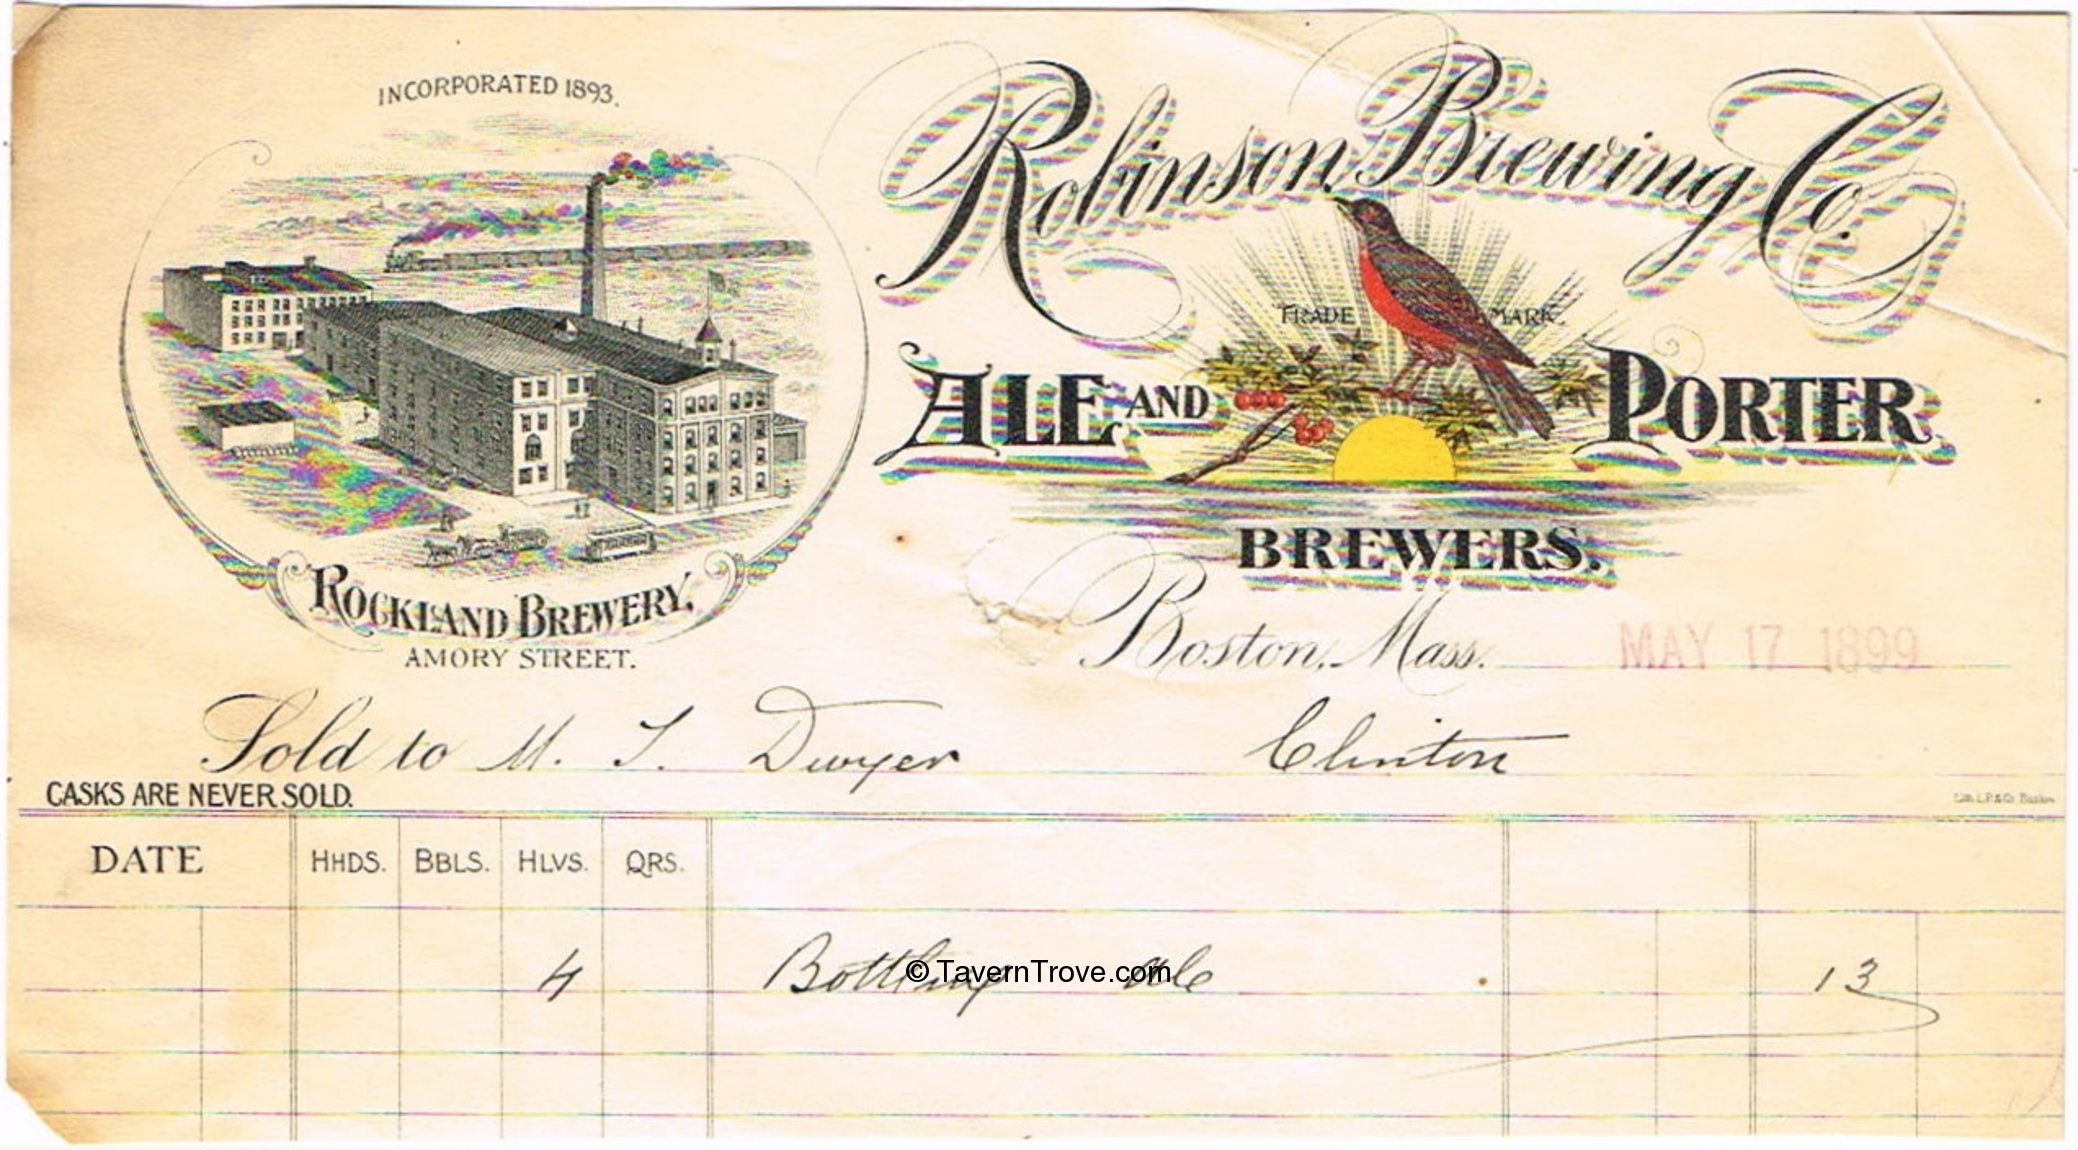 INCORPORATED 1893.
Robinson Brewing Co.
TRADE MARK
ALE AND PORTER
BREWERS.
ROCKLAND BREWERY,
AMORY STREET.
Boston, Mass. MAY 17 1899
Sold to M. T. Dwyer Clinton
CASKS ARE NEVER SOLD.
DATE HHDS. BBLS. HLVS. QRS.
4 Bottling Ale 13
© TavernTrove.com